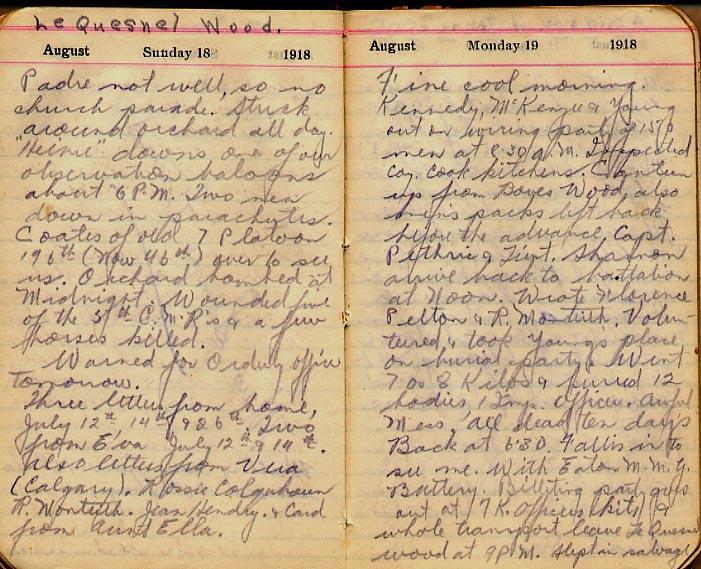 Le Quesnel Wood.
August Sunday 18 1918
Padre not well, so no
church parade. Stuck
around orchard all day.
"Heinie" downs, one of our
observation baloons
about 6 P.M. Two men
down in parachutes.
Coates of old 7 Platoon
196th (Now 46th) over to see
us. Orchard bombed at
Midnight. Wounded five
of the 5th C.M.R's & a few
horses killed.
Warned for Orderly officer
tomorrow.
Three letters from home,
July 12th, 14th, & 26th, Two
from Eva July 12th & 14th.
Also letters from Vera
(Calgary). Flossie Colquhoun
R. Monteith. Jean Hendry. & Card
from Aunt Ella.
August Monday 19 1918
Fine cool morning.
Kennedy, McKenzie & Young
out on wiring party of 150
men at 8.30 A.M. Inspected
coy. cook kitchens. Canteen
up from Boves Wood, also
men's packs left back
before the advance. Capt.
Pethrie & Lieut. Shannon
arrive back to battalion
at Noon. Wrote Florence
Pelton & R. Monteith. Volun-
teered & took Young's place
on burial party. Went
7 or 8 Kilos & buried 12
bodies, 1 Imp. Officer. Awful
Mess, all dead ten days
Back at 6.30. Fallis in to
see me. With Eaton M.M.G.
Battery. Billeting party goes
out at 7 K. Officers kits &
whole transport leave Le Quesnel
wood at 9 P.M. Slept in salvage